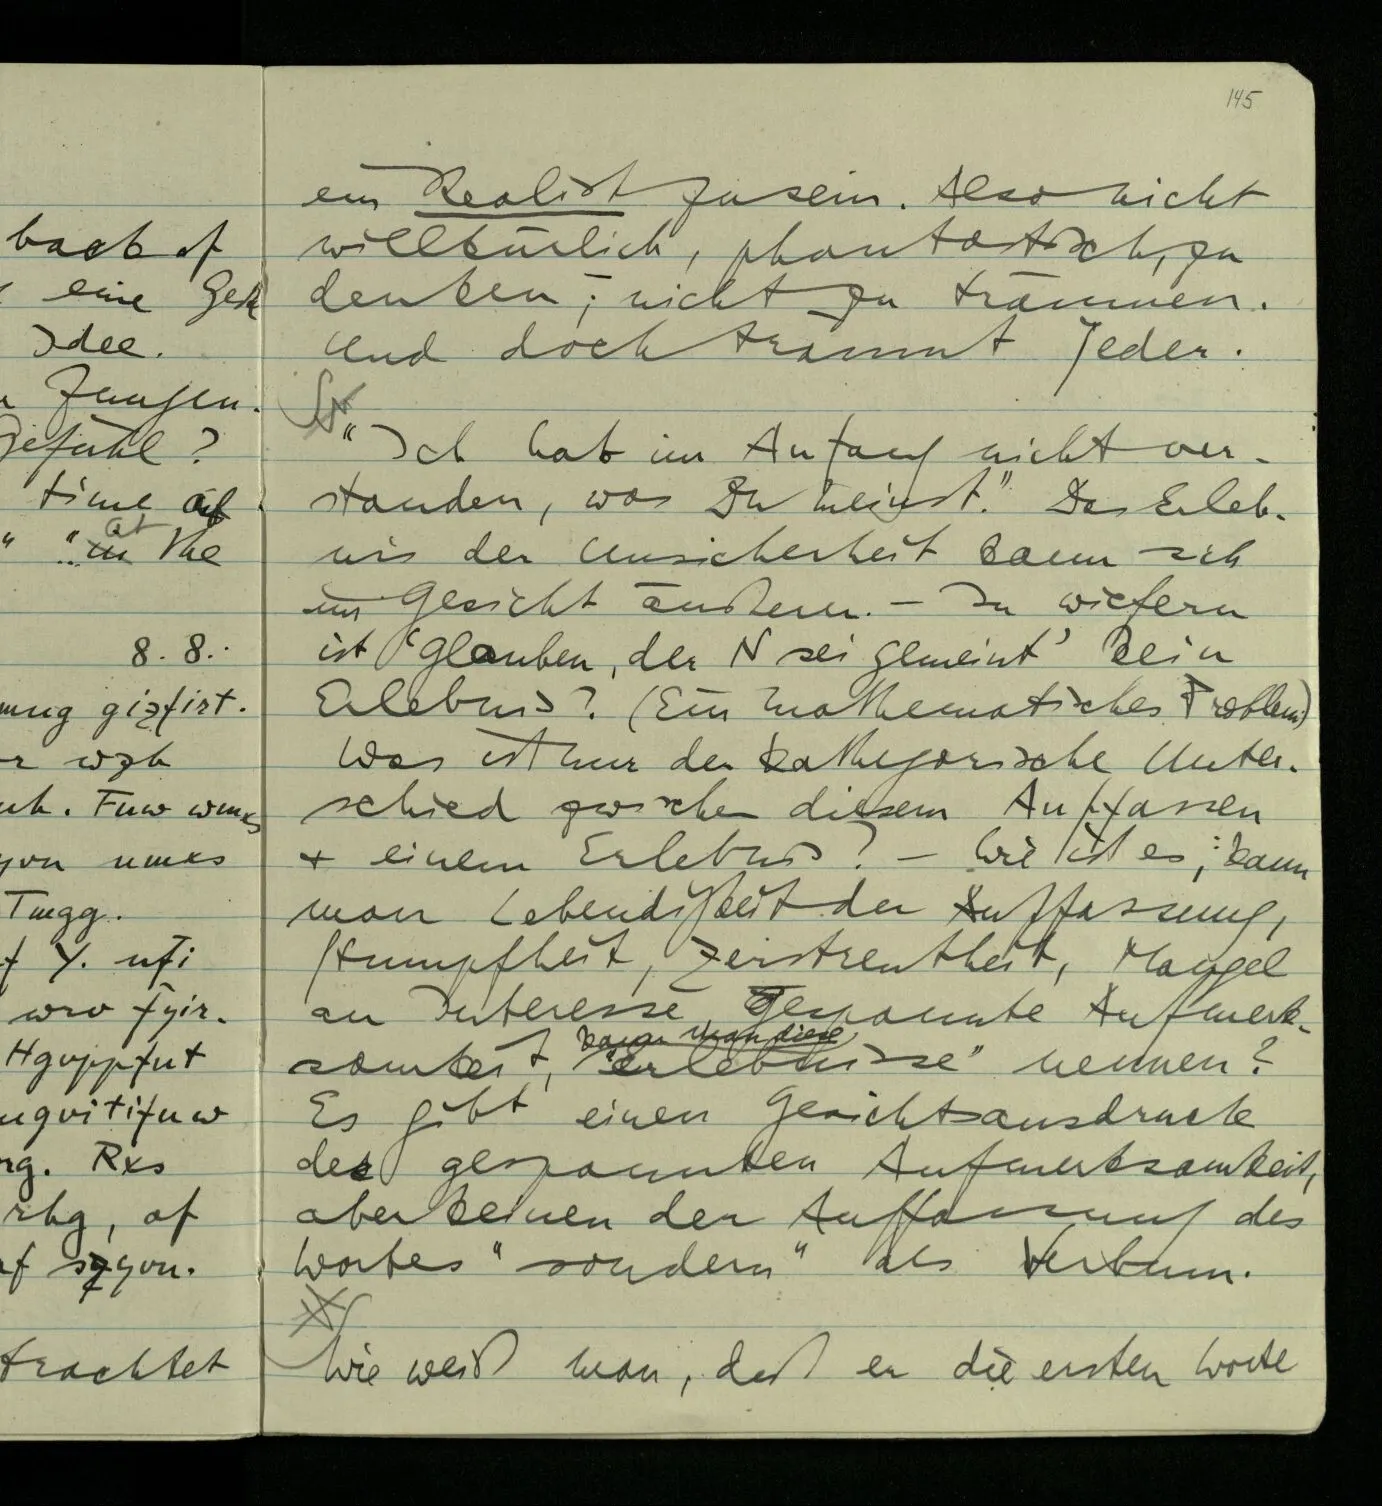 145
back of
eine
Idee.
Jungen.
Gefühl?
time of
" "in the
at
8. 8.
wzh
. Fuw
Tmgg.
Y. nfi
wro fyir.
Hgvppfnt
rg. Rxs
rhg, of
trachtet
ein Realist zu sein. Also nicht
willkürlich, phantastisch, zu
denken; nicht zu träumen.
Und doch träumt Jeder.
"Ich hab im Anfang nicht ver-
standen, was Du meinst." Das Erleb-
nis der Unsicherheit kann sich
im Gesicht äußern. – In wiefern
ist 'glauben, der N sei gemeint' kein
Erlebnis? (Ein mathematisches Problem)
Was ist nur der kathegorische Unter-
schied zwischen diesem Auffassen
+ einem Erlebnis? – Wie ist es: kann
man Lebendigkeit der Auffassung,
Stumpfheit, Zerstreutheit, Mangel
an Interesse, gespannte Aufmerk-
kann man diese
samkeit, "Erlebnisse" nennen?
Es gibt einen Gesichtsausdruck
der gespannten Aufmerksamkeit,
aber keinen der Auffassung des
Wortes "sondern" als Verbum.
Wie weiß man, daß er die ersten Worte